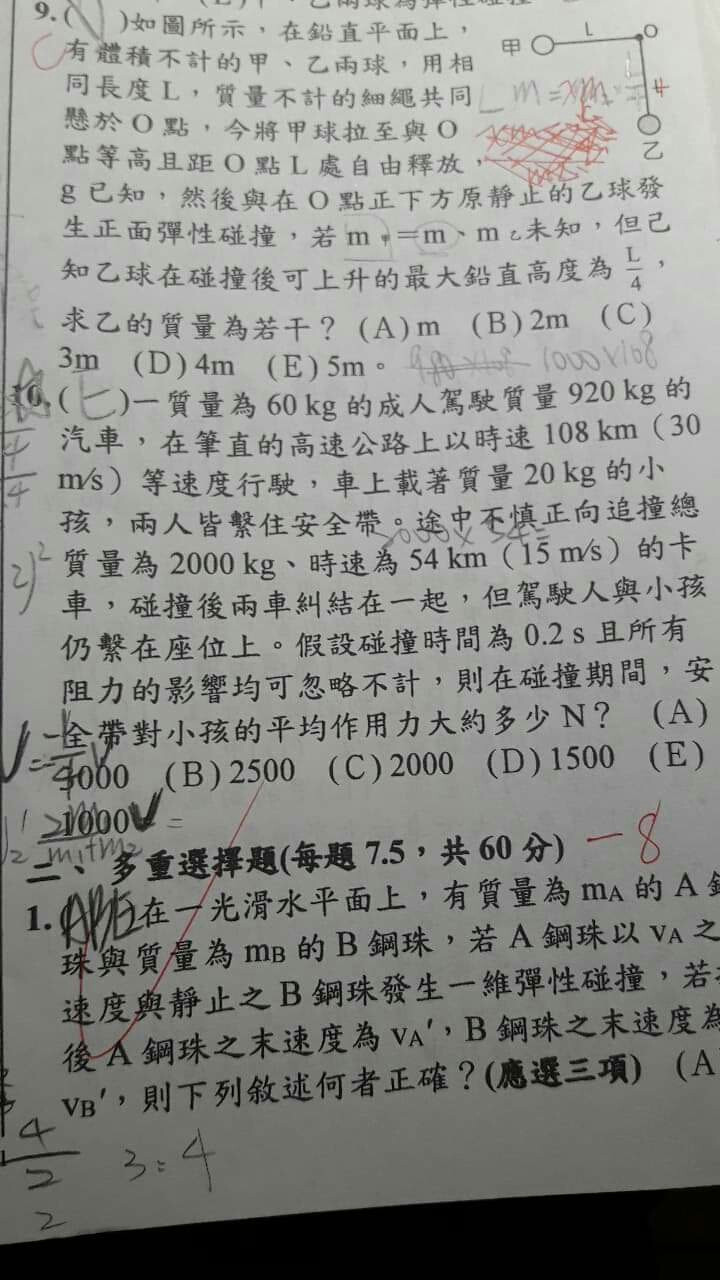 9.( )如圖所示,在鉛直平面上,
有體積不計的甲、乙兩球,用相
同長度L,質量不計的細繩共同
懸於O點,今將甲球拉至與O
點等高且距O點L處自由釋放,
g已知,然後與在O點正下方原靜止的乙球發
生正面彈性碰撞,若m甲=m、m乙未知,但已
知乙球在碰撞後可上升的最大鉛直高度為L/4,
求乙的質量為若干?(A)m (B)2m (C)
3m (D)4m (E)5m。
甲 L O
乙
C
1000×108
10.( )一質量為60 kg的成人駕駛質量920 kg的
汽車,在筆直的高速公路上以時速108 km(30
m/s)等速度行駛,車上載著質量20 kg的小
孩,兩人皆繫住安全帶。途中不慎正向追撞總
質量為2000 kg、時速為54 km(15 m/s)的卡
車,碰撞後兩車糾結在一起,但駕駛人與小孩
仍繫在座位上。假設碰撞時間為0.2 s且所有
阻力的影響均可忽略不計,則在碰撞期間,安
全帶對小孩的平均作用力大約多少N? (A)
3000 (B)2500 (C)2000 (D)1500 (E)
1000
m1+m2
-8
二、多重選擇題(每題7.5,共60分)
1. 在一光滑水平面上,有質量為mA的A鋼
珠與質量為mB的B鋼珠,若A鋼珠以vA之
速度與靜止之B鋼珠發生一維彈性碰撞,若
後A鋼珠之末速度為vA′,B鋼珠之末速度為
vB′,則下列敘述何者正確?(應選三項) (A
4
2
2
3:4